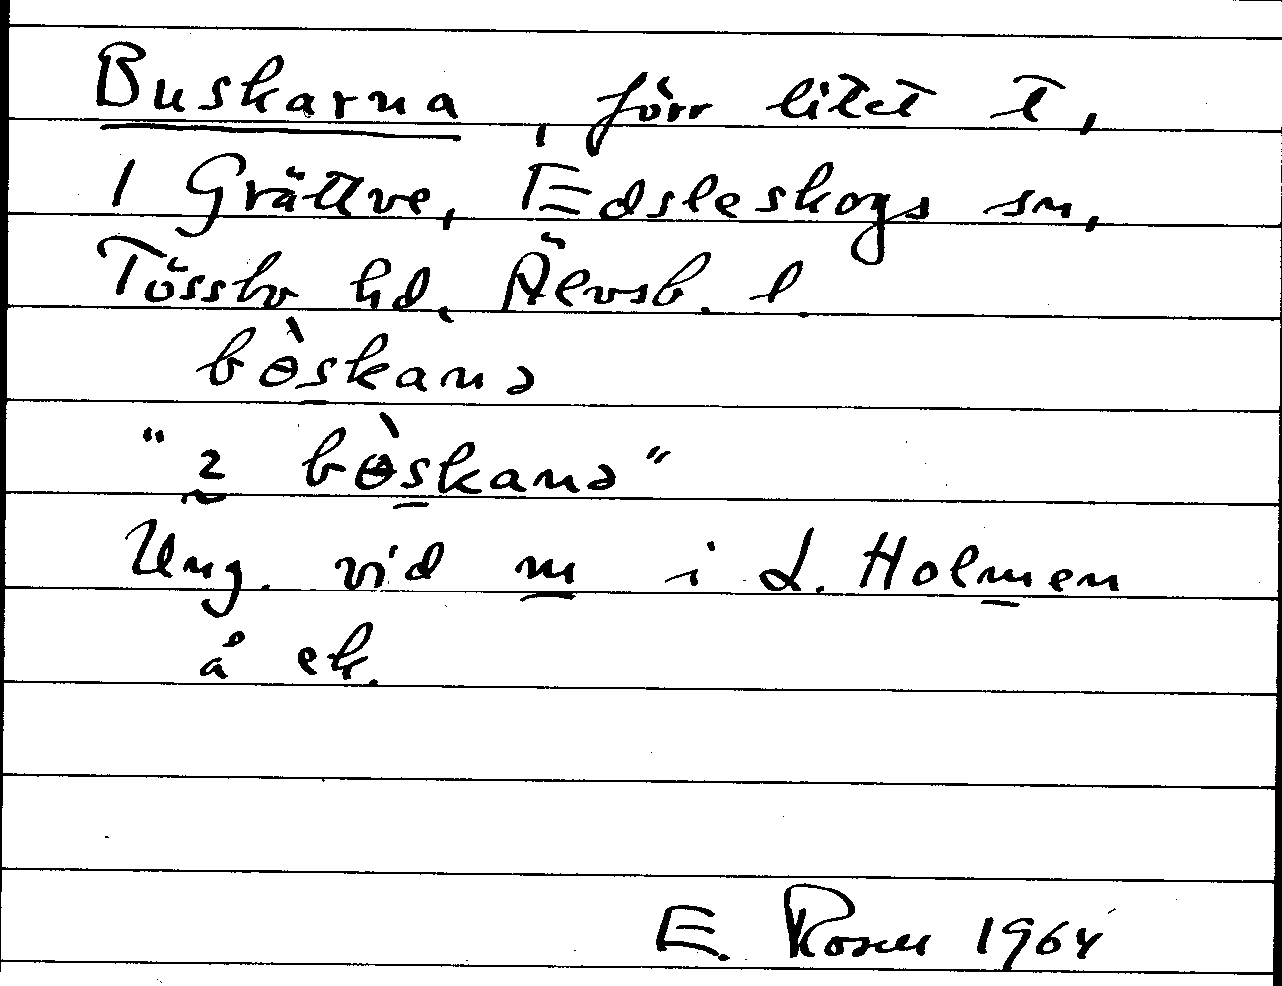 Buskarna, förr litet t,
1 Grättve, Edsleskogs sn,
Tössbo hd, Älvsb. l.
bɵ̀skanə
"2 bɵ̀skanə"
Ung. vid m i L. Holmen
å ek.
E. Rosell 1964